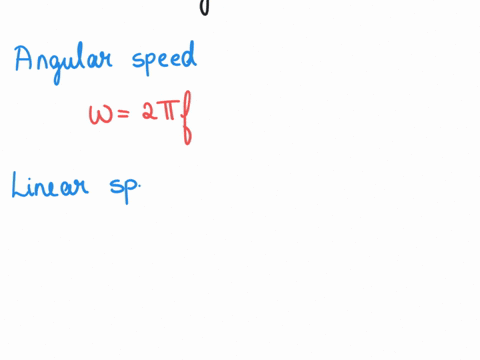 Angular speed
ω = 2πf
Linear sp